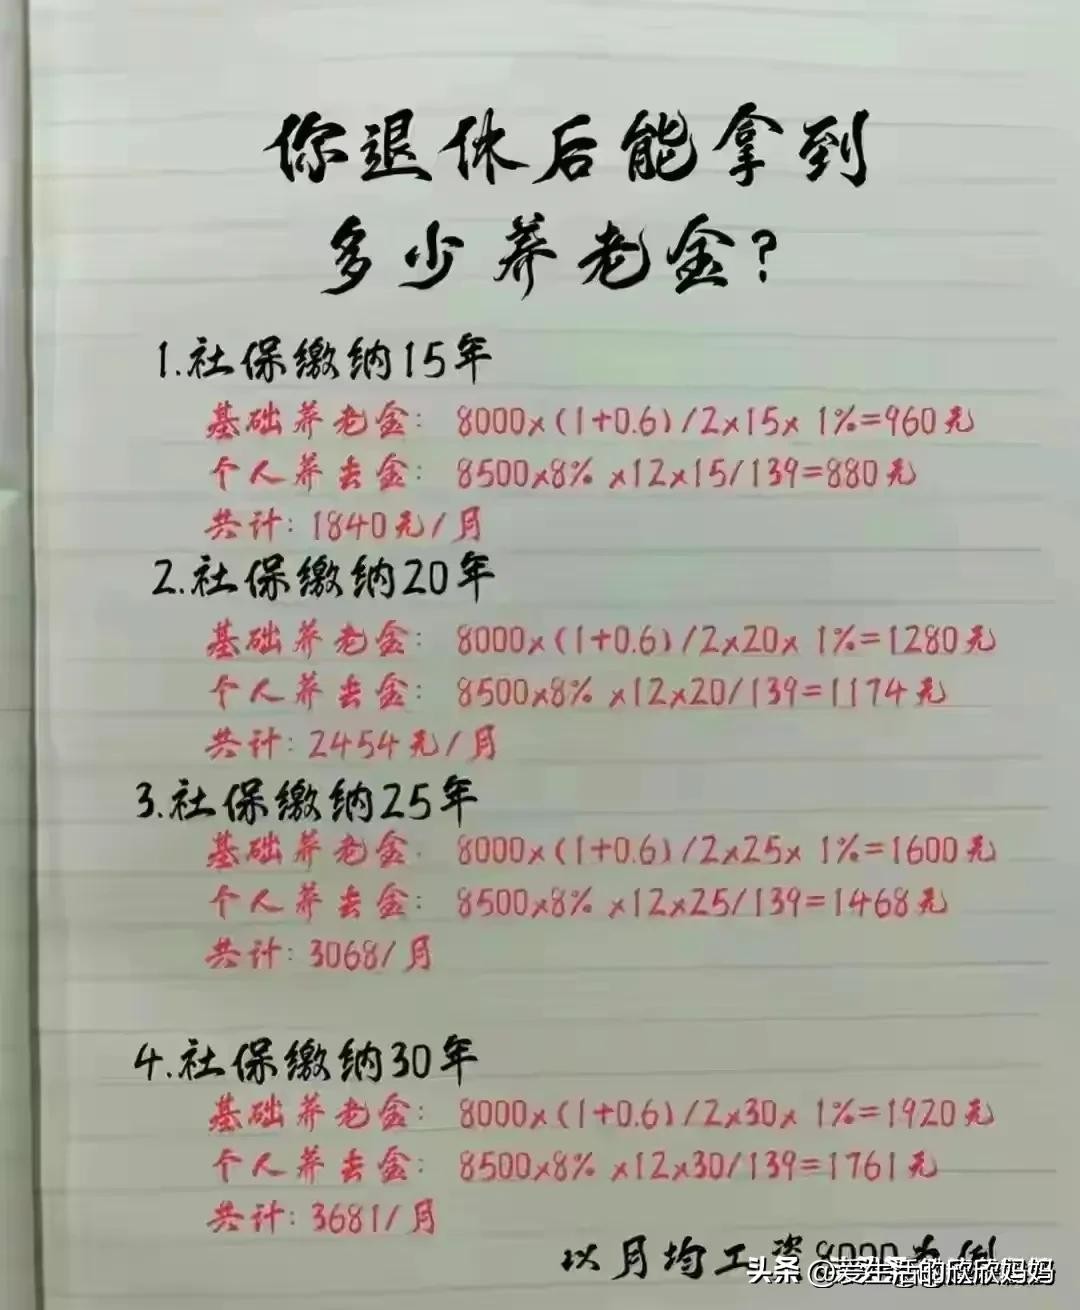 你退休后能拿到
多少养老金?
1.社保缴纳15年
基础养老金: 8000×(1+0.6)/2×15× 1%=960元
个人养老金: 8500×8% ×12×15/139=880元
共计: 1840元/月
2.社保缴纳20年
基础养老金: 8000×(1+0.6)/2×20× 1%=1280元
个人养老金: 8500×8% ×12×20/139=1174元
共计: 2454元/月
3.社保缴纳25年
基础养老金: 8000×(1+0.6)/2×25× 1%=1600元
个人养老金: 8500×8% ×12×25/139=1468元
共计: 3068/月
4.社保缴纳30年
基础养老金: 8000×(1+0.6)/2×30× 1%=1920元
个人养老金: 8500×8% ×12×30/139=1761元
共计: 3681/月
以月均工资8000为例
头条 @爱生活的欣欣妈妈